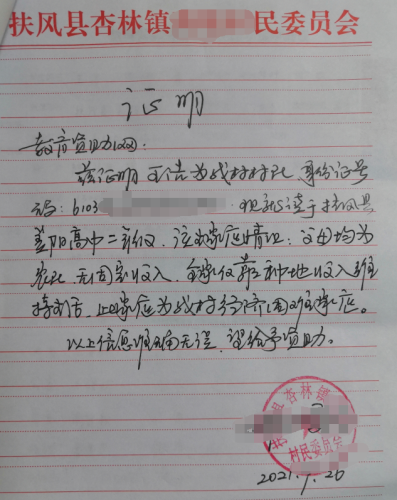 扶风县杏林镇 民委员会
证明
教育资助网:
兹证明 王 为我村村民,身份证号
码:6103 . 现就读于扶风县
高中二 ,该 家庭情况:父母均为
农民,无固定收入,全家仅靠种地收入维
持生活,此家庭为我村经济困难家庭。
以上信息准确无误,望给予资助。
县杏林镇
村民委员会
2021.9.26